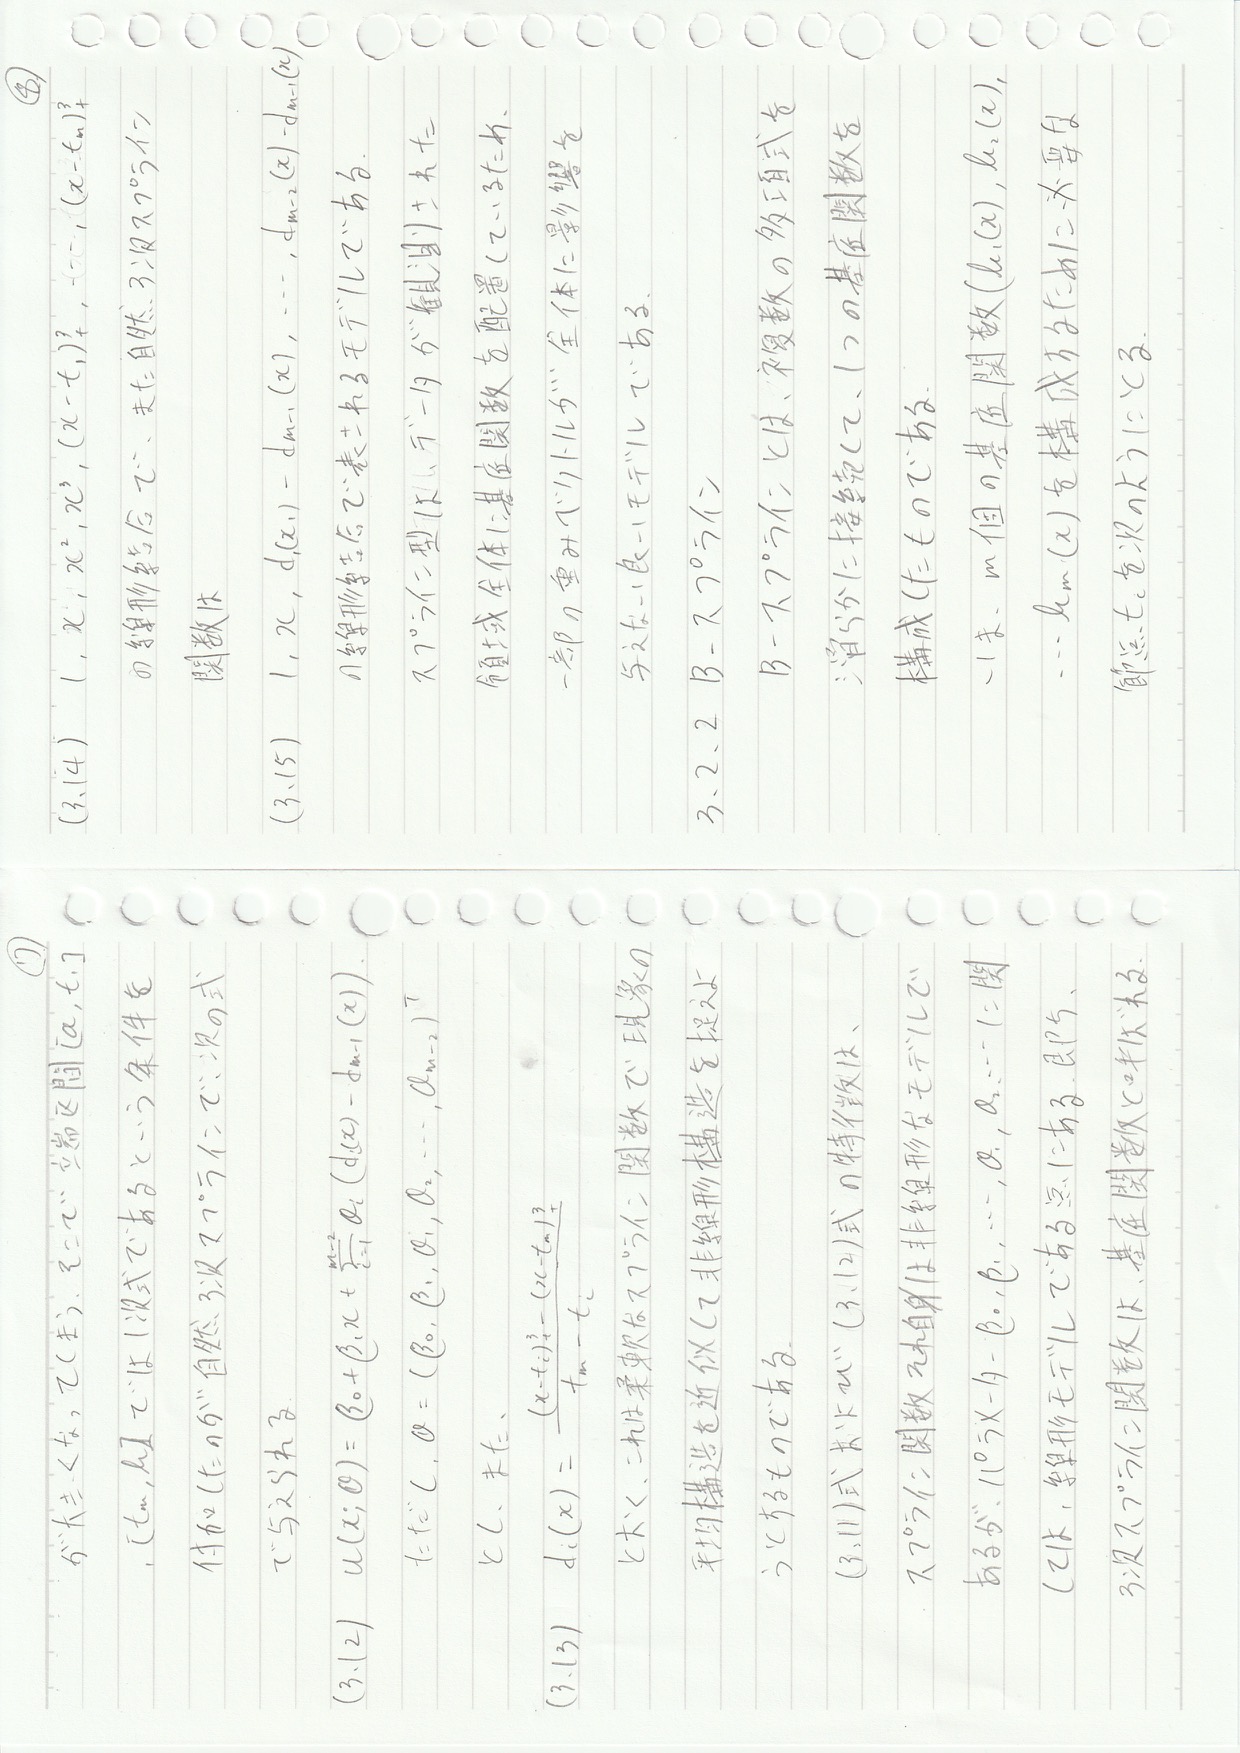 ⑦
が大きくなってしまう。そこで 両端区間[a, t₁]
, [tm, b]では1次式であるという条件を
付加したのが自然3次スプラインで、次の式
で与えられる。
(3.12) u(x; θ) = β₀ + β₁x + Σ_{i=1}^{m-2} θi (di(x) - dm-1(x)).
ただし、θ = (β₀, β₁, θ₁, θ₂, …, θm-2)ᵀ
とし、また、
(3.13) di(x) = ((x-ti)³₊ - (x-tm)³₊) / (tm - ti)
とおく、これは柔軟なスプライン関数で現象の
平均構造を近似して非線形構造を捉えよ
うとするものである。
(3.11)式および(3.12)式の特徴は、
スプライン関数それ自身は非線形なモデルで
あるが、パラメーターβ₀, β₁, …, θ₁, θ₂ … に関
しては、線形モデルである点にある。即ち、
3次スプライン関数は、基底関数と呼ばれる。
⑧
(3.14) 1, x, x², x³, (x-t₁)³₊, …, (x-tm)³₊
の線形結合で、また自然3次スプライン
関数は
(3.15) 1, x, d₁(x₁) - dm-1(x), …, dm-2(x) - dm-1(x)
の線形結合で表されるモデルである。
スプライン型は、データが観測された
領域全体に基底関数を配置しているため、
一部の重みベクトルが全体に影響を
与えない良いモデルである。
3.2.2 B-スプライン
B-スプラインとは、複数の多項式を
滑らかに接続して、1つの基底関数を
構成したものである。
いま、m個の基底関数(b₁(x), b₂(x),
… bm(x)を構成するために必要な
節点tiを次のようにとる。